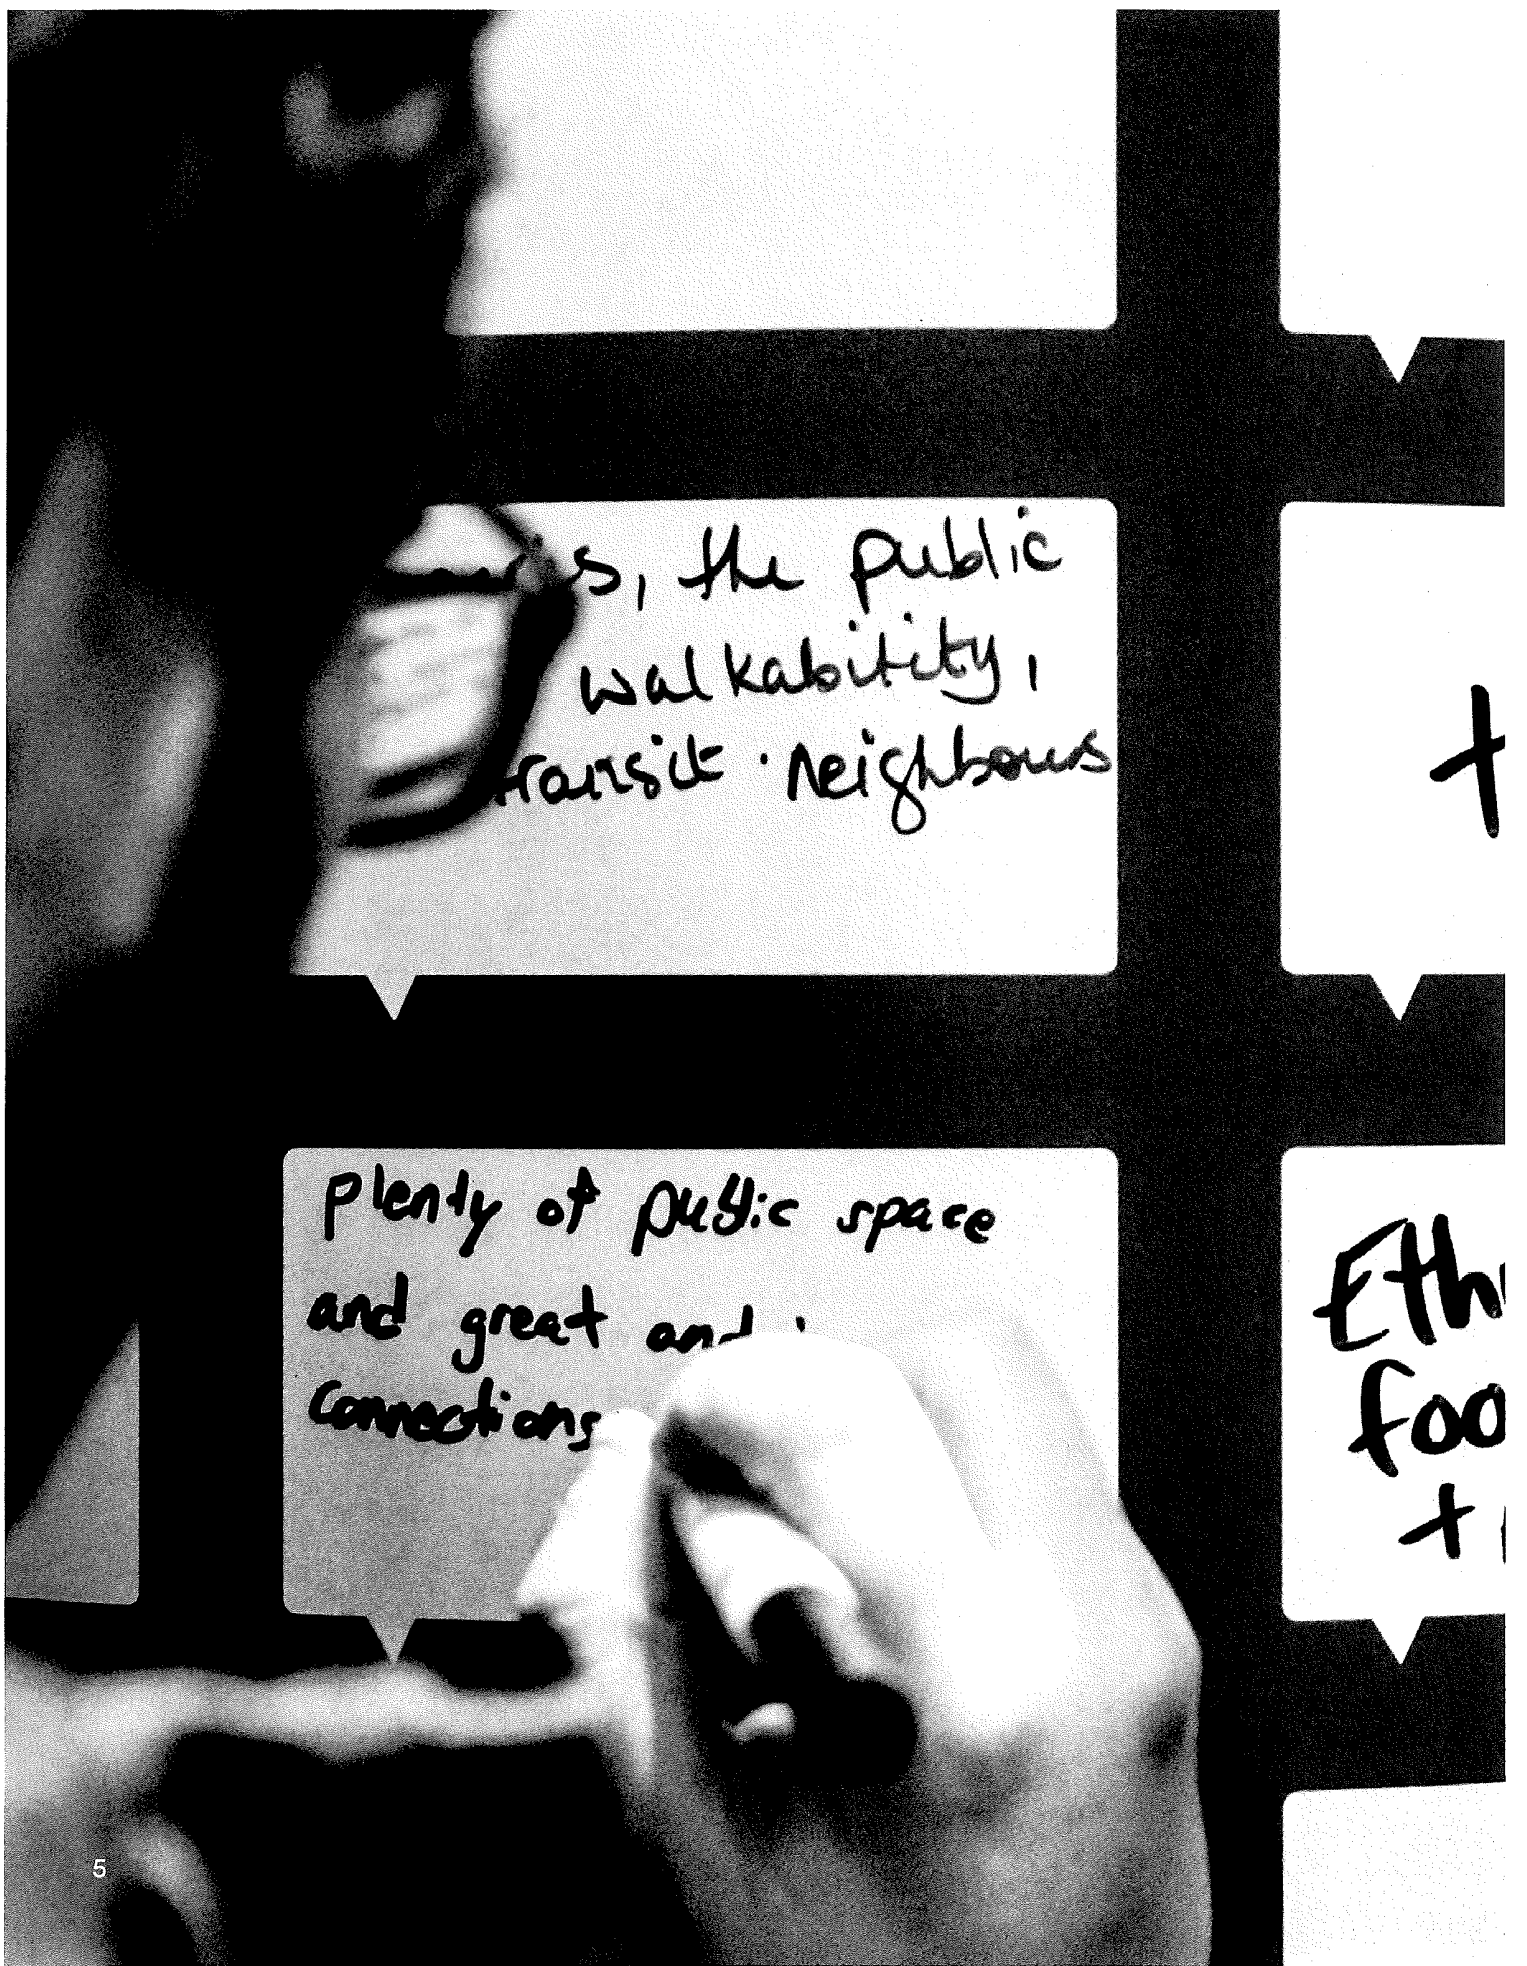 s, the public
walkability,
transit · neighbours
plenty of public space
and great and
connections
+
Eth
foo
+
5